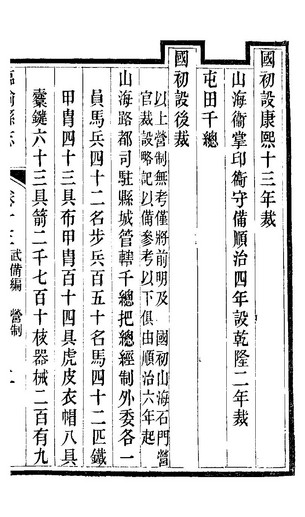 國初設康熙十三年裁
山海衛掌印衛守備順治四年設乾隆二年裁
屯田千總
國初設後裁
以上營制無考僅將前明及　國初山海石門營
官裁設略記以備參考以下俱由順治六年起
山海路都司駐縣城管轄千總把總經制外委各一
員馬兵四十二名步兵百五十名馬四十二匹鐵
甲冑四十三具布甲冑百十四具虎皮衣帽八具
櫜鞬六十三具箭二千七百十枝器械二百有九
臨榆縣志
武備編　營制